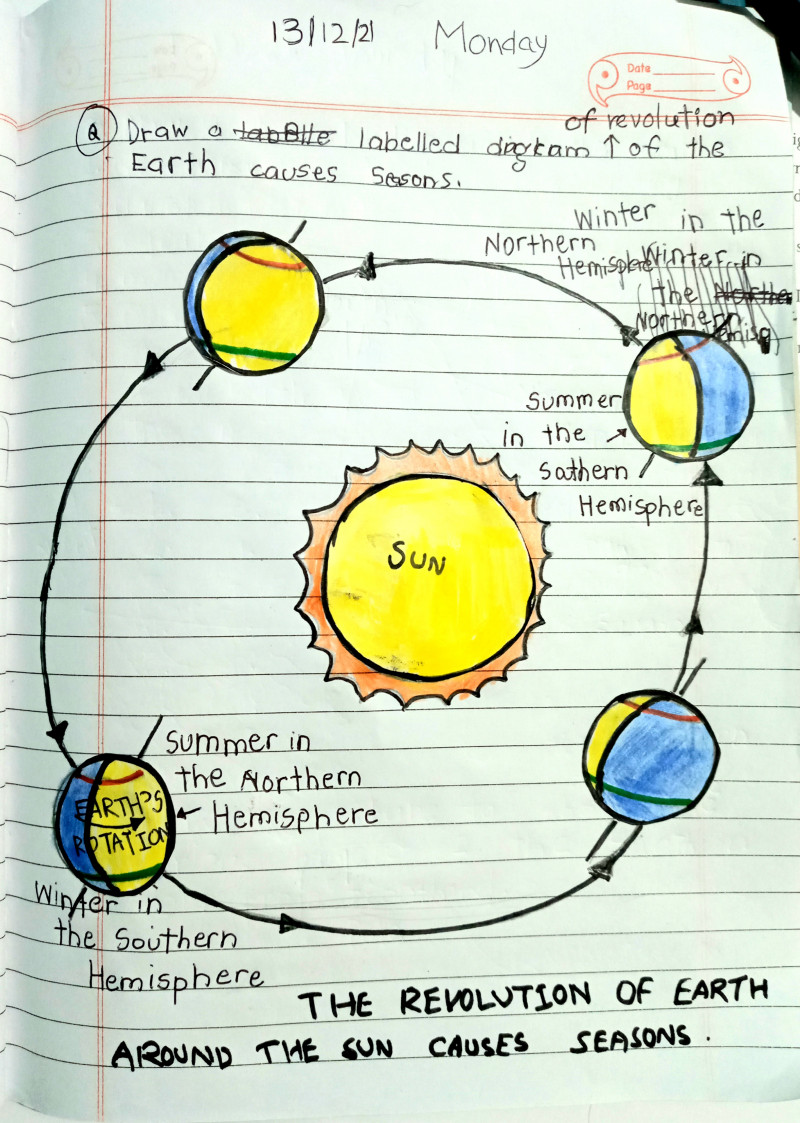 13/12/21 Monday
Date
Page
of revolution
Q Draw a labelled diagram ↑ of the
Earth causes Seasons.
Winter in the
Northern
Hemisphere
Winter in
the
Northern
Hemisp
Summer
in the
Sathern
Hemisphere
SUN
Summer in
the Northern
Hemisphere
EARTH'S
ROTATION
Winter in
the Southern
Hemisphere
THE REVOLUTION OF EARTH
AROUND THE SUN CAUSES SEASONS.